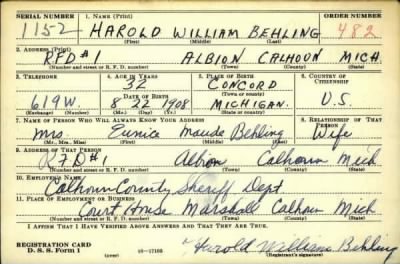 SERIAL NUMBER 1. NAME (Print) ORDER NUMBER
1152 HAROLD WILLIAM BEHLING 482
(First) (Middle) (Last)
2. ADDRESS (Print)
RFD #1 ALBION CALHOUN MICH
(Number and street or R. F. D. number) (Town) (County) (State)
3. TELEPHONE 4. AGE IN YEARS 5. PLACE OF BIRTH 6. COUNTRY OF CITIZENSHIP
32 CONCORD
(Town or county)
DATE OF BIRTH
619W. 8 22 1908 MICHIGAN. U.S.
(Exchange) (Number) (Mo.) (Day) (Yr.) (State or country)
7. NAME OF PERSON WHO WILL ALWAYS KNOW YOUR ADDRESS 8. RELATIONSHIP OF THAT PERSON
Mrs. Eunice Maude Behling Wife
(Mr., Mrs., Miss) (First) (Middle) (Last)
9. ADDRESS OF THAT PERSON
RFD #1 Albion Calhoun Mich
(Number and street or R. F. D. number) (Town) (County) (State)
10. EMPLOYER'S NAME
Calhoun County Sheriff Dept
11. PLACE OF EMPLOYMENT OR BUSINESS
Court House Marshall Calhoun Mich
(Number and street or R. F. D. number) (Town) (County) (State)
I AFFIRM THAT I HAVE VERIFIED ABOVE ANSWERS AND THAT THEY ARE TRUE.
REGISTRATION CARD
D. S. S. Form 1 (over) 16—17105 Harold William Behling
(Registrant's signature)